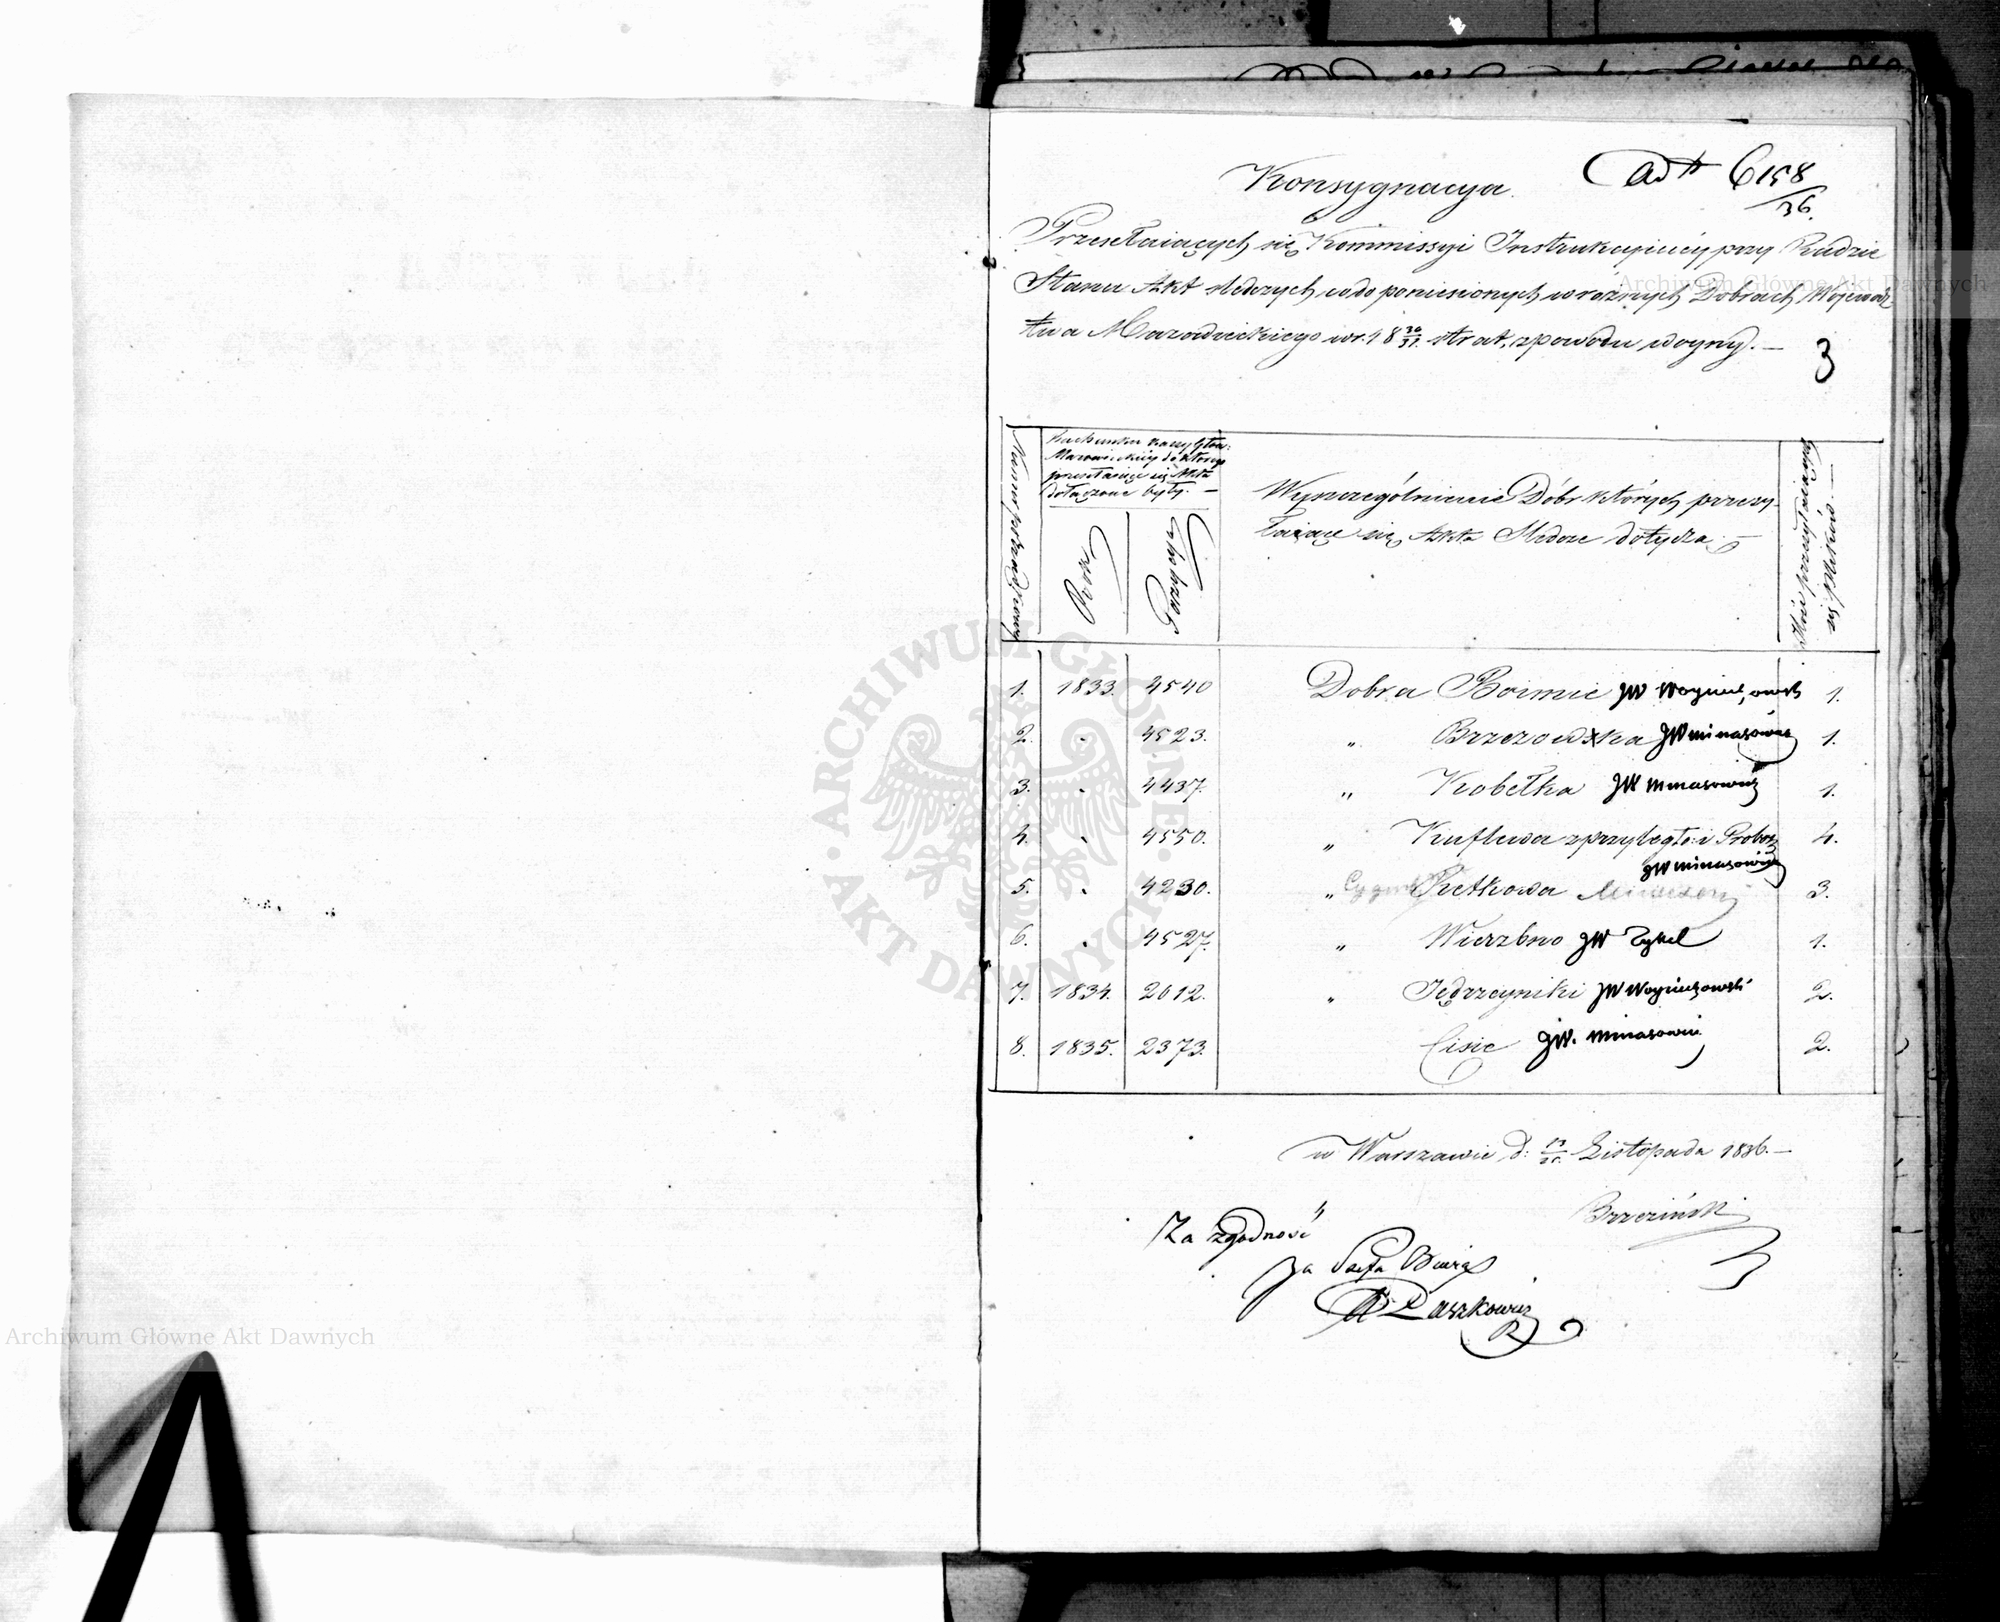 ad 6158/36.
Konsygnacya.
Przesełaiących się Kommissyi Instrukcyinéy przy Radzie
Stanu Akt śledczych co do poniesionych w różnych Dobrach Wojewódz
twa Mazowieckiego w r. 18 30/31. strat, z powodu woyny. —
3
Numer porządkowy
Rachunku Kassy Głów:
Mazowieckiéj do którego
przesełaiące się Akta
dołączone były. —
Rok
Pozycya
Wyszczególnienie Dóbr których przesy-
łaiące się Akta Śledcze dotyczą. —
Ilość przesyłaiących
się —
1. 1833. 4540 Dobra Boimie JW Woyciechowsk 1.
2. . 4523. " Brzezowska JW Minasowicz 1.
3. . 4437. " Kobełka JW Minasowicz 1.
4. . 4550. " Kuflewa z przyległ: i Probos 4.
JW Minasowicz
5. . 4230. " Retkowa 3.
6. . 4527. " Wierzbno JW Zykel 1.
7. 1834. 2012. " Jędrzeyniki JW Woyciechowski 2.
8. 1835. 2373. Cisie JW. Minasowicz 2.
w Warszawie d: Listopada 1836. —
Brzeziński
Za zgodność
Za Szefa Biura
Daszkowicz
ARCHIWUM GŁÓWNE AKT DAWNYCH
Archiwum Główne Akt Dawnych
Archiwum Główne Akt Dawnych